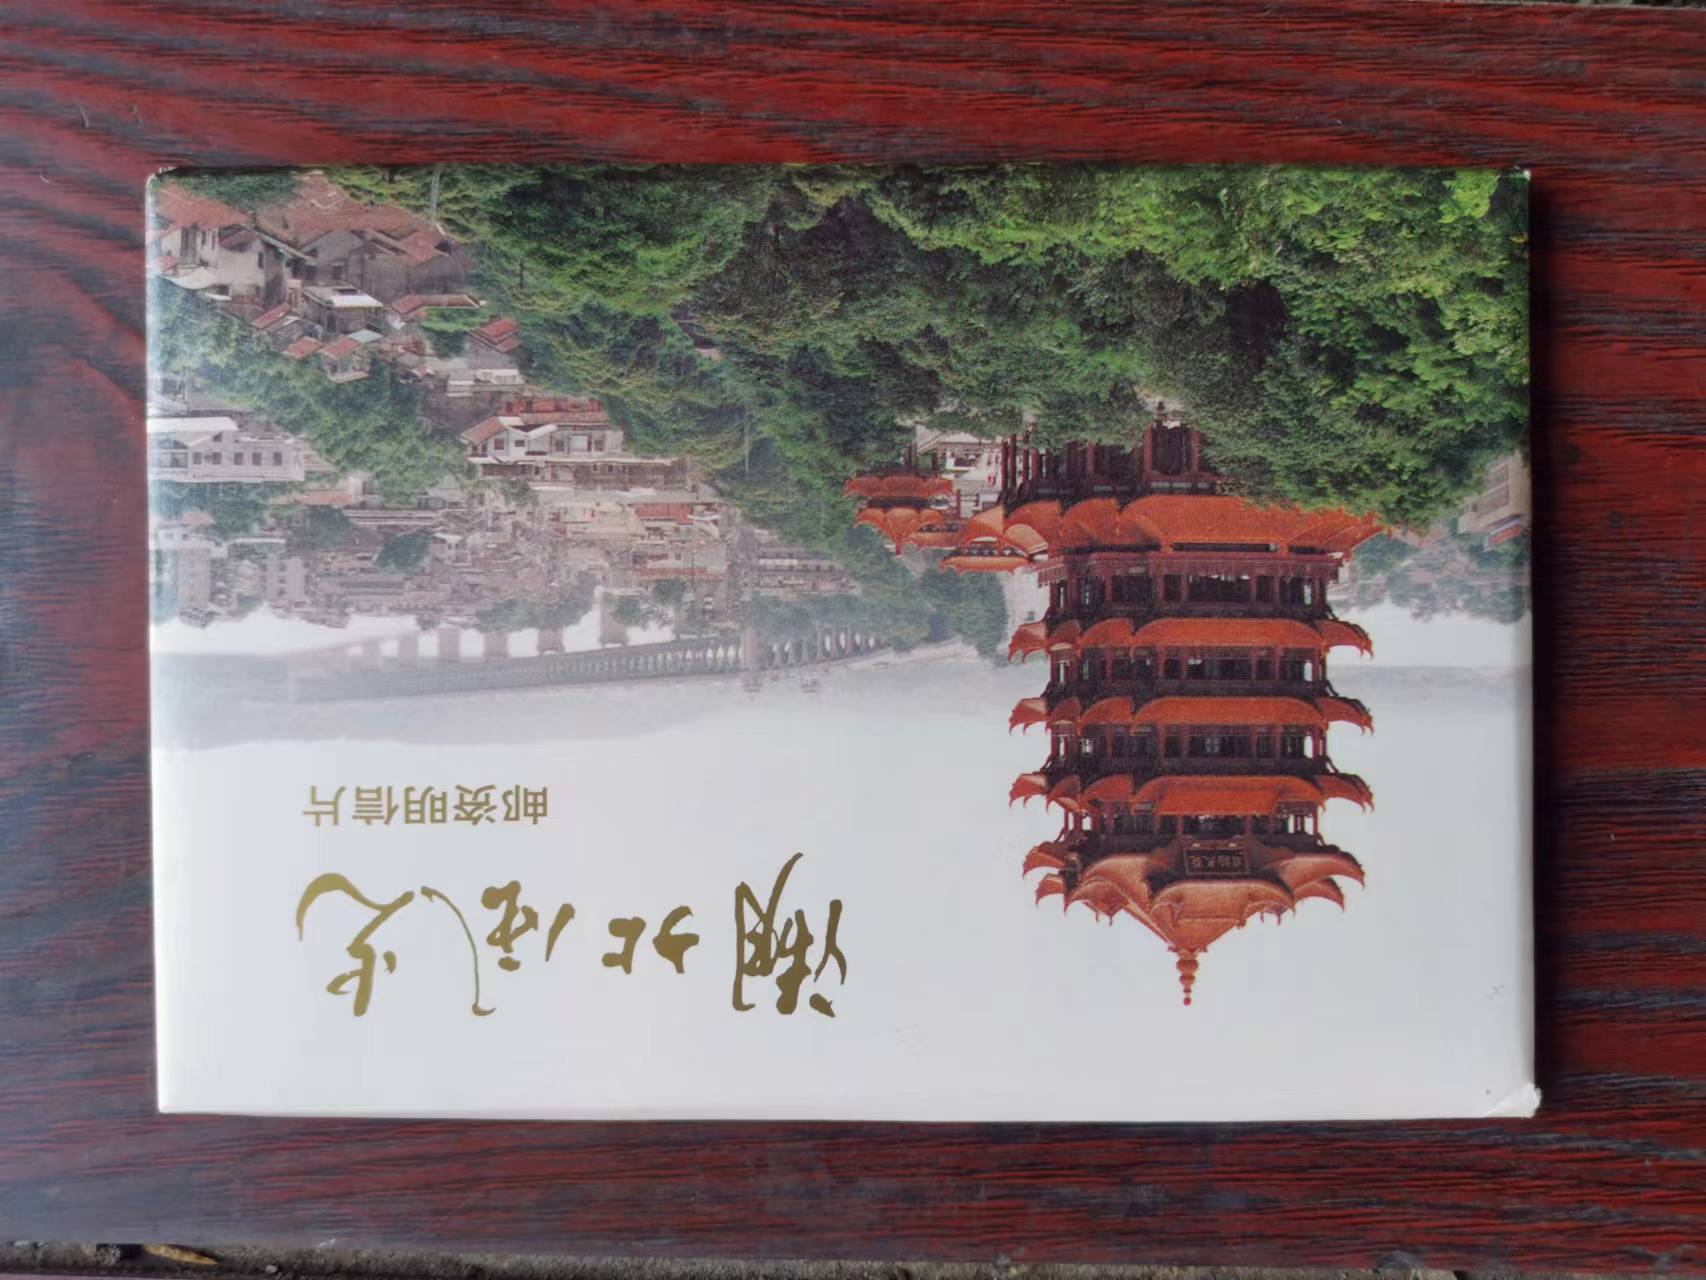 湖北風光
邮资明信片